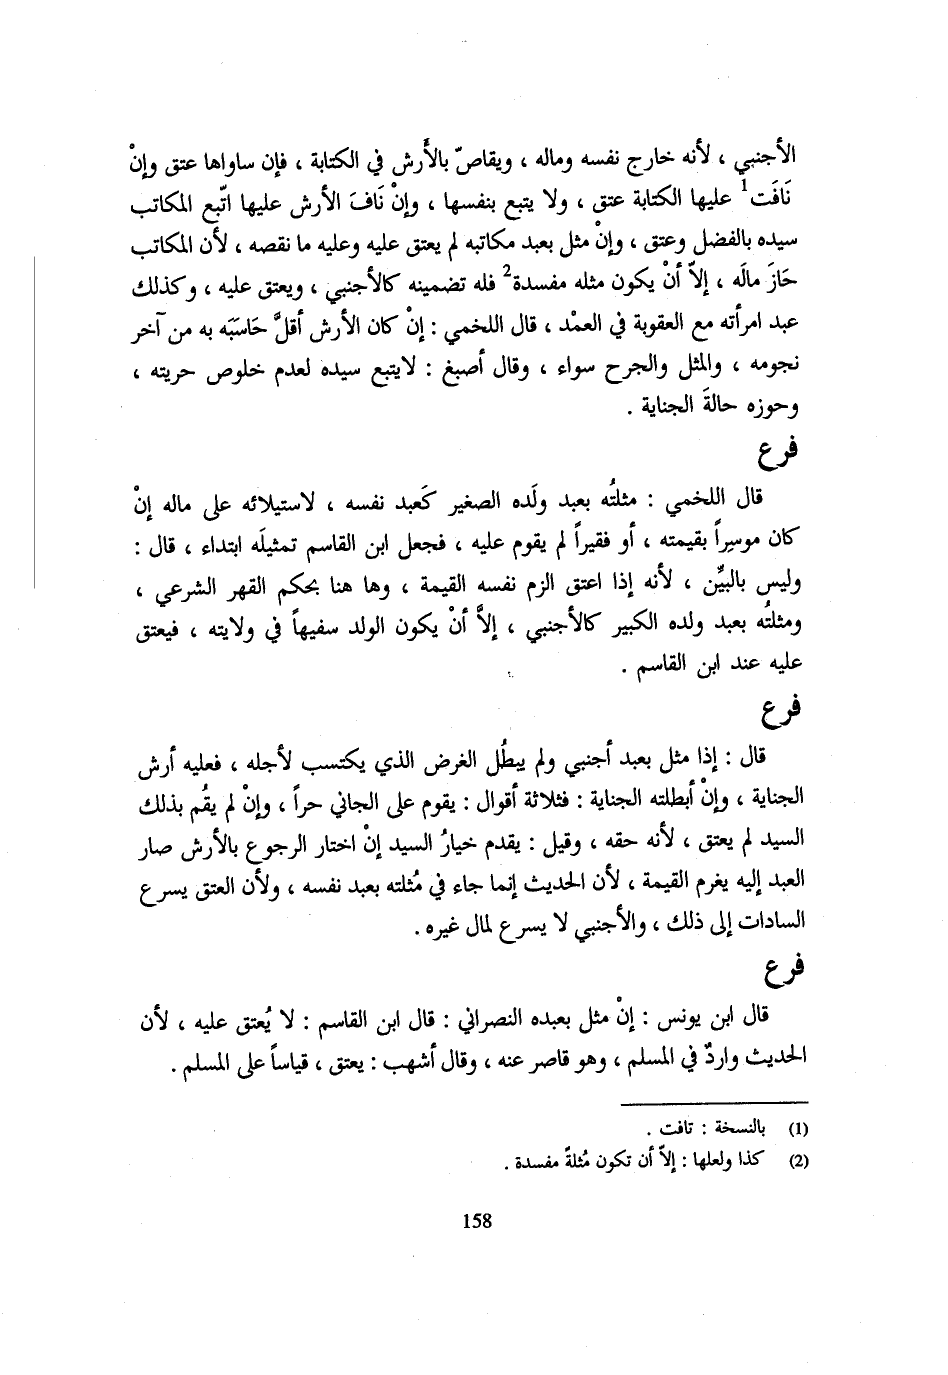 الأجنبي ، لأنه خارج نفسه وماله ، ويقاصّ بالأَرش في الكتابة ، فإن ساواها عتق وإنْ
نَافَت1 عليها الكتابة عتق ، ولا يتبع بنفسها ، وإنْ نَافَ الأرش عليها اتّبع المكاتب
سيده بالفضل وعتق ، وإنْ مثل بعبد مكاتبه لم يعتق عليه وعليه ما نقصه ، لأن المكاتب
حَازَ مالَه ، إلاّ أنْ يكون مثله مفسدة2 فله تضمينه كالأجنبي ، ويعتق عليه ، وكذلك
عبد امرأته مع العقوبة في العمْد ، قال اللخمي : إنْ كان الأرش أقلَّ حَاسَبَه به من آخر
نجومه ، والمثل والجرح سواء ، وقال أصبغ : لايتبع سيده لعدم خلوص حريته ،
وحوزه حالةَ الجناية .
فرع
قال اللخمي : مثلتُه بعبد ولَده الصغير كَعبد نفسه ، لاستيلائه على ماله إنْ
كان موسِراً بقيمته ، أو فقيراً لم يقوم عليه ، فجعل ابن القاسم تمثيلَه ابتداء ، قال :
وليس بالبيِّن ، لأنه إذا اعتق الزم نفسه القيمة ، وها هنا بحكم القهر الشرعي ،
ومثلتُه بعبد ولده الكبير كالأجنبي ، إلاَّ أنْ يكون الولد سفيهاً في ولايته ، فيعتق
عليه عند ابن القاسم .
فرع
قال : إذا مثل بعبد أجنبي ولم يبطُل الغرض الذي يكتسب لأجله ، فعليه أرش
الجناية ، وإنْ أبطلته الجناية : فثلاثة أقوال : يقوم على الجاني حراً ، وإنْ لم يقُم بذلك
السيد لم يعتق ، لأنه حقه ، وقيل : يقدم خيارُ السيد إنْ اختار الرجوع بالأرش صار
العبد إليه يغرم القيمة ، لأن الحديث إنما جاء في مُثلته بعبد نفسه ، ولأن العتق يسرع
السادات إلى ذلك ، والأجنبي لا يسرع لمال غيره .
فرع
قال ابن يونس : إنْ مثل بعبده النصراني : قال ابن القاسم : لا يُعتق عليه ، لأن
الحديث واردٌ في المسلم ، وهو قاصر عنه ، وقال أشهب : يعتق ، قياساً على المسلم .
(1) بالنسخة : تافت .
(2) كذا ولعلها : إلاّ أن تكون مُثلةً مفسدة .
158